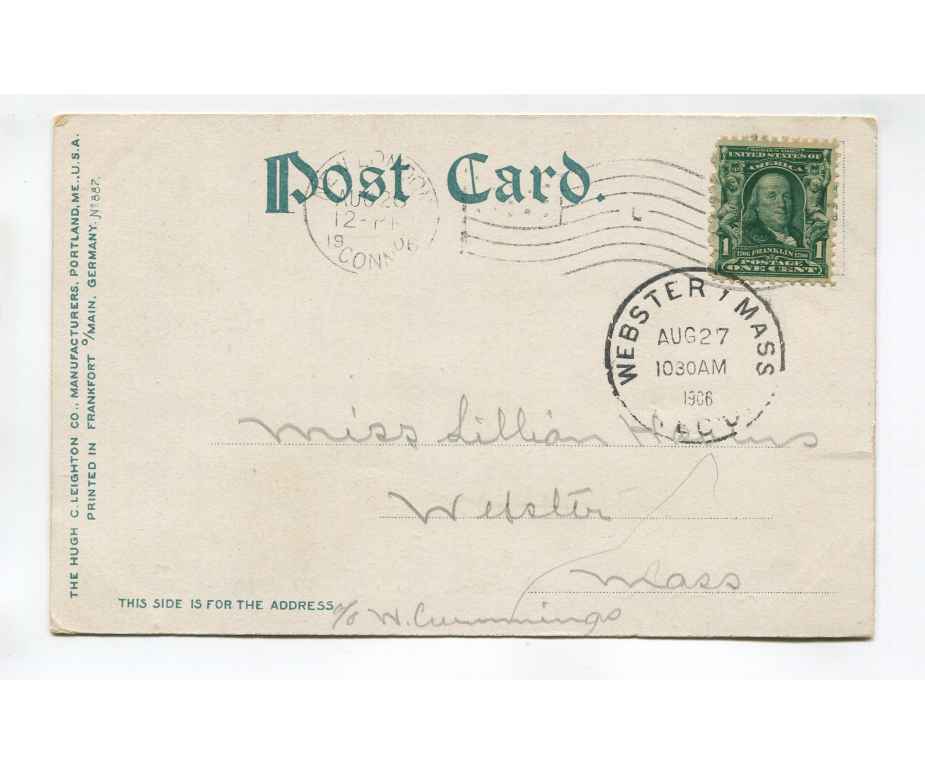 THE HUGH C. LEIGHTON CO., MANUFACTURERS, PORTLAND, ME., U.S.A.
PRINTED IN FRANKFORT O/MAIN, GERMANY. No 887.
Post Card.
NEW LONDON
12-
19 06
CONN
UNITED STATES OF
AMERICA
1 FRANKLIN 1
POSTAGE
ONE CENT
WEBSTER, MASS
AUG 27
1030AM
1906
Miss Lillian
Webster
Mass
THIS SIDE IS FOR THE ADDRESS
c/o W. Cummings